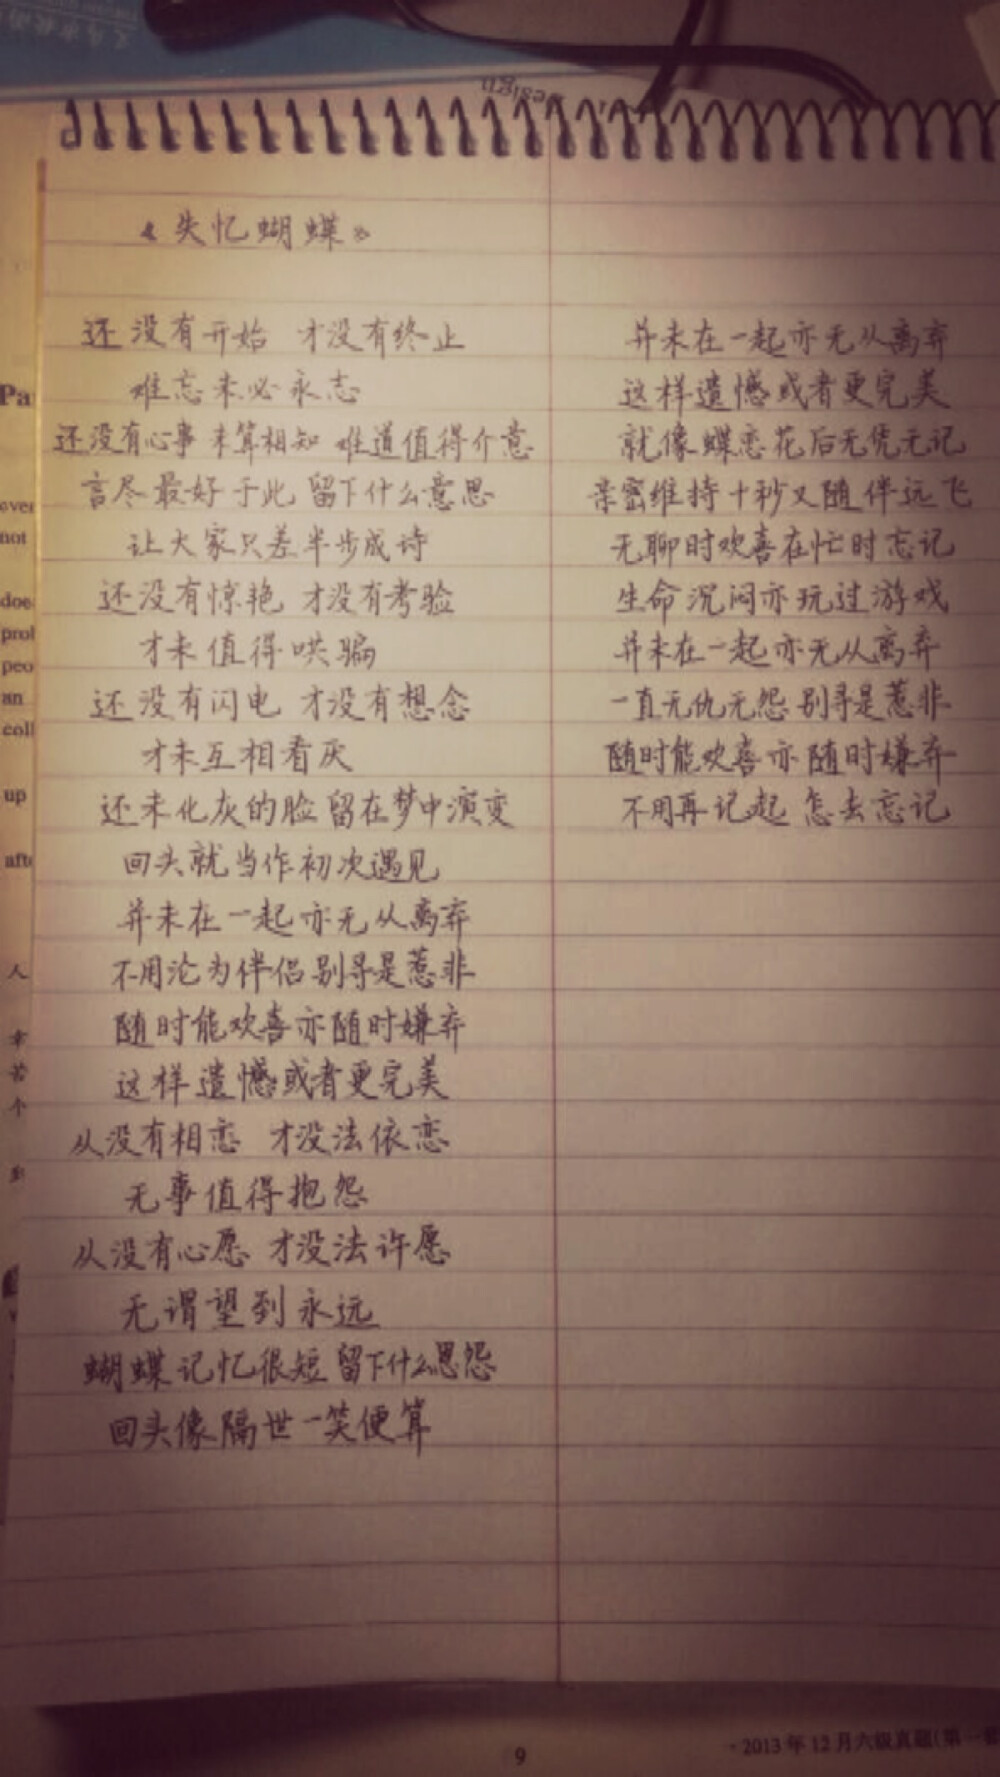 《失忆蝴蝶》
还没有开始 才没有终止
难忘未必永志
还没有心事 未算相知 难道值得介意
言尽最好于此 留下什么意思
让大家只差半步成诗
还没有惊艳 才没有考验
才未值得哄骗
还没有闪电 才没有想念
才未互相看厌
还未化灰的脸 留在梦中演变
回头就当作初次遇见
并未在一起亦无从离弃
不用沦为伴侣别寻是惹非
随时能欢喜亦随时嫌弃
这样遗憾或者更完美
从没有相恋 才没法依恋
无事值得抱怨
从没有心愿 才没法许愿
无谓望到永远
蝴蝶记忆很短 留下什么恩怨
回头像隔世一笑便算
并未在一起亦无从离弃
这样遗憾或者更完美
就像蝶恋花后无凭无记
亲密维持十秒又随伴远飞
无聊时欢喜在忙时忘记
生命沉闷亦玩过游戏
并未在一起亦无从离弃
一直无仇无怨 别寻是惹非
随时能欢喜亦随时嫌弃
不用再记起 怎去忘记
Design
Pa
over
not
doe
prol
peo
an
coll
up
afte
人
幸
苦
个
到
9
·2013年12月六级真题(第一